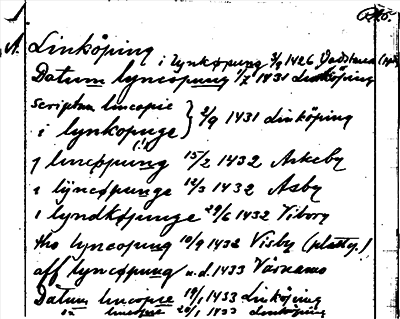 1. Linköping
i lynkøpung 3/9 1426 Vadstena
Datum lyncopung 1/7 1431 Linköping
scriptum lincopie
i lynkopunge } 2/9 1431 Linköping
j lincøpung 15/2 1432 Askeby
i lÿncøpunge 12/3 1432 Asby
i lyndkøpunge 29/6 1432 Viborg
tho lyncopung 10/9 1432 Visby (plattty.)
aff lyncøpung u.d. 1433 Värnamo
Datum lincopie 19/1 1433 Linköping
lincopie 20/1 1433 Linköping